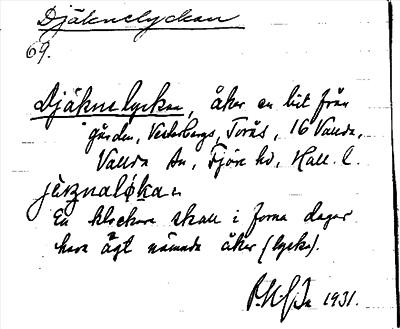 Djäknelyckan
69.
Djäknelyckan, åker en bit från
gården, Vesterbergs, Torås, 16 Vallda,
Vallda sn, Fjäre hd, Hall. l.
En klockare skall i forna dagar
have ägt nämnda åker (lycka).
1931.